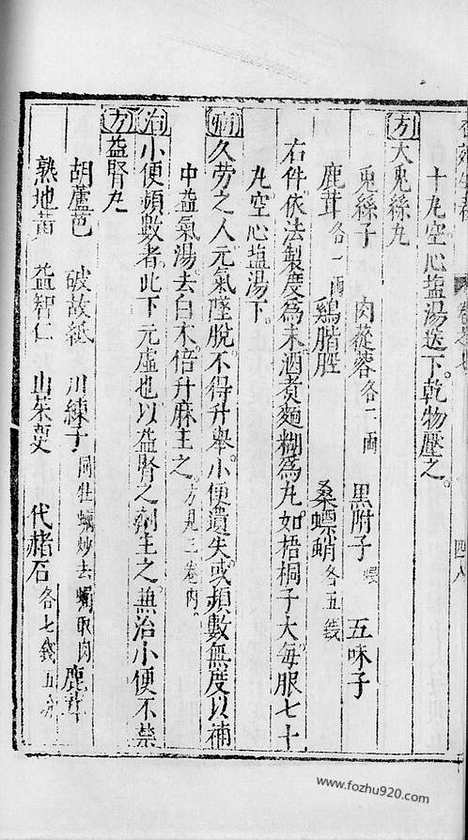 十丸空心塩湯送下乾物壓之。
四八
方 大兎絲丸
兎絲子 肉蓯蓉各二兩 黒附子 五味子
鹿茸各一兩 鷄膍胵 桑螵蛸各五錢
右件依法製度爲末酒煮麵糊爲丸如梧桐子大每服七十
丸空心塩湯下。
病 久劳之人元氣墜脫不得升舉小便遺失或頻數無度以補
中益氣湯去白术倍升麻主之。方見二卷内。
治 小便頻數者此下元虛也以益腎之劑主之無治小便不禁
方 益腎丸
胡蘆芭 破故紙 川練子同牡蠣炒去蠣取肉 鹿茸
熟地黄 益智仁 山茱萸 代赭石各七錢五分
www.fozhu920.com